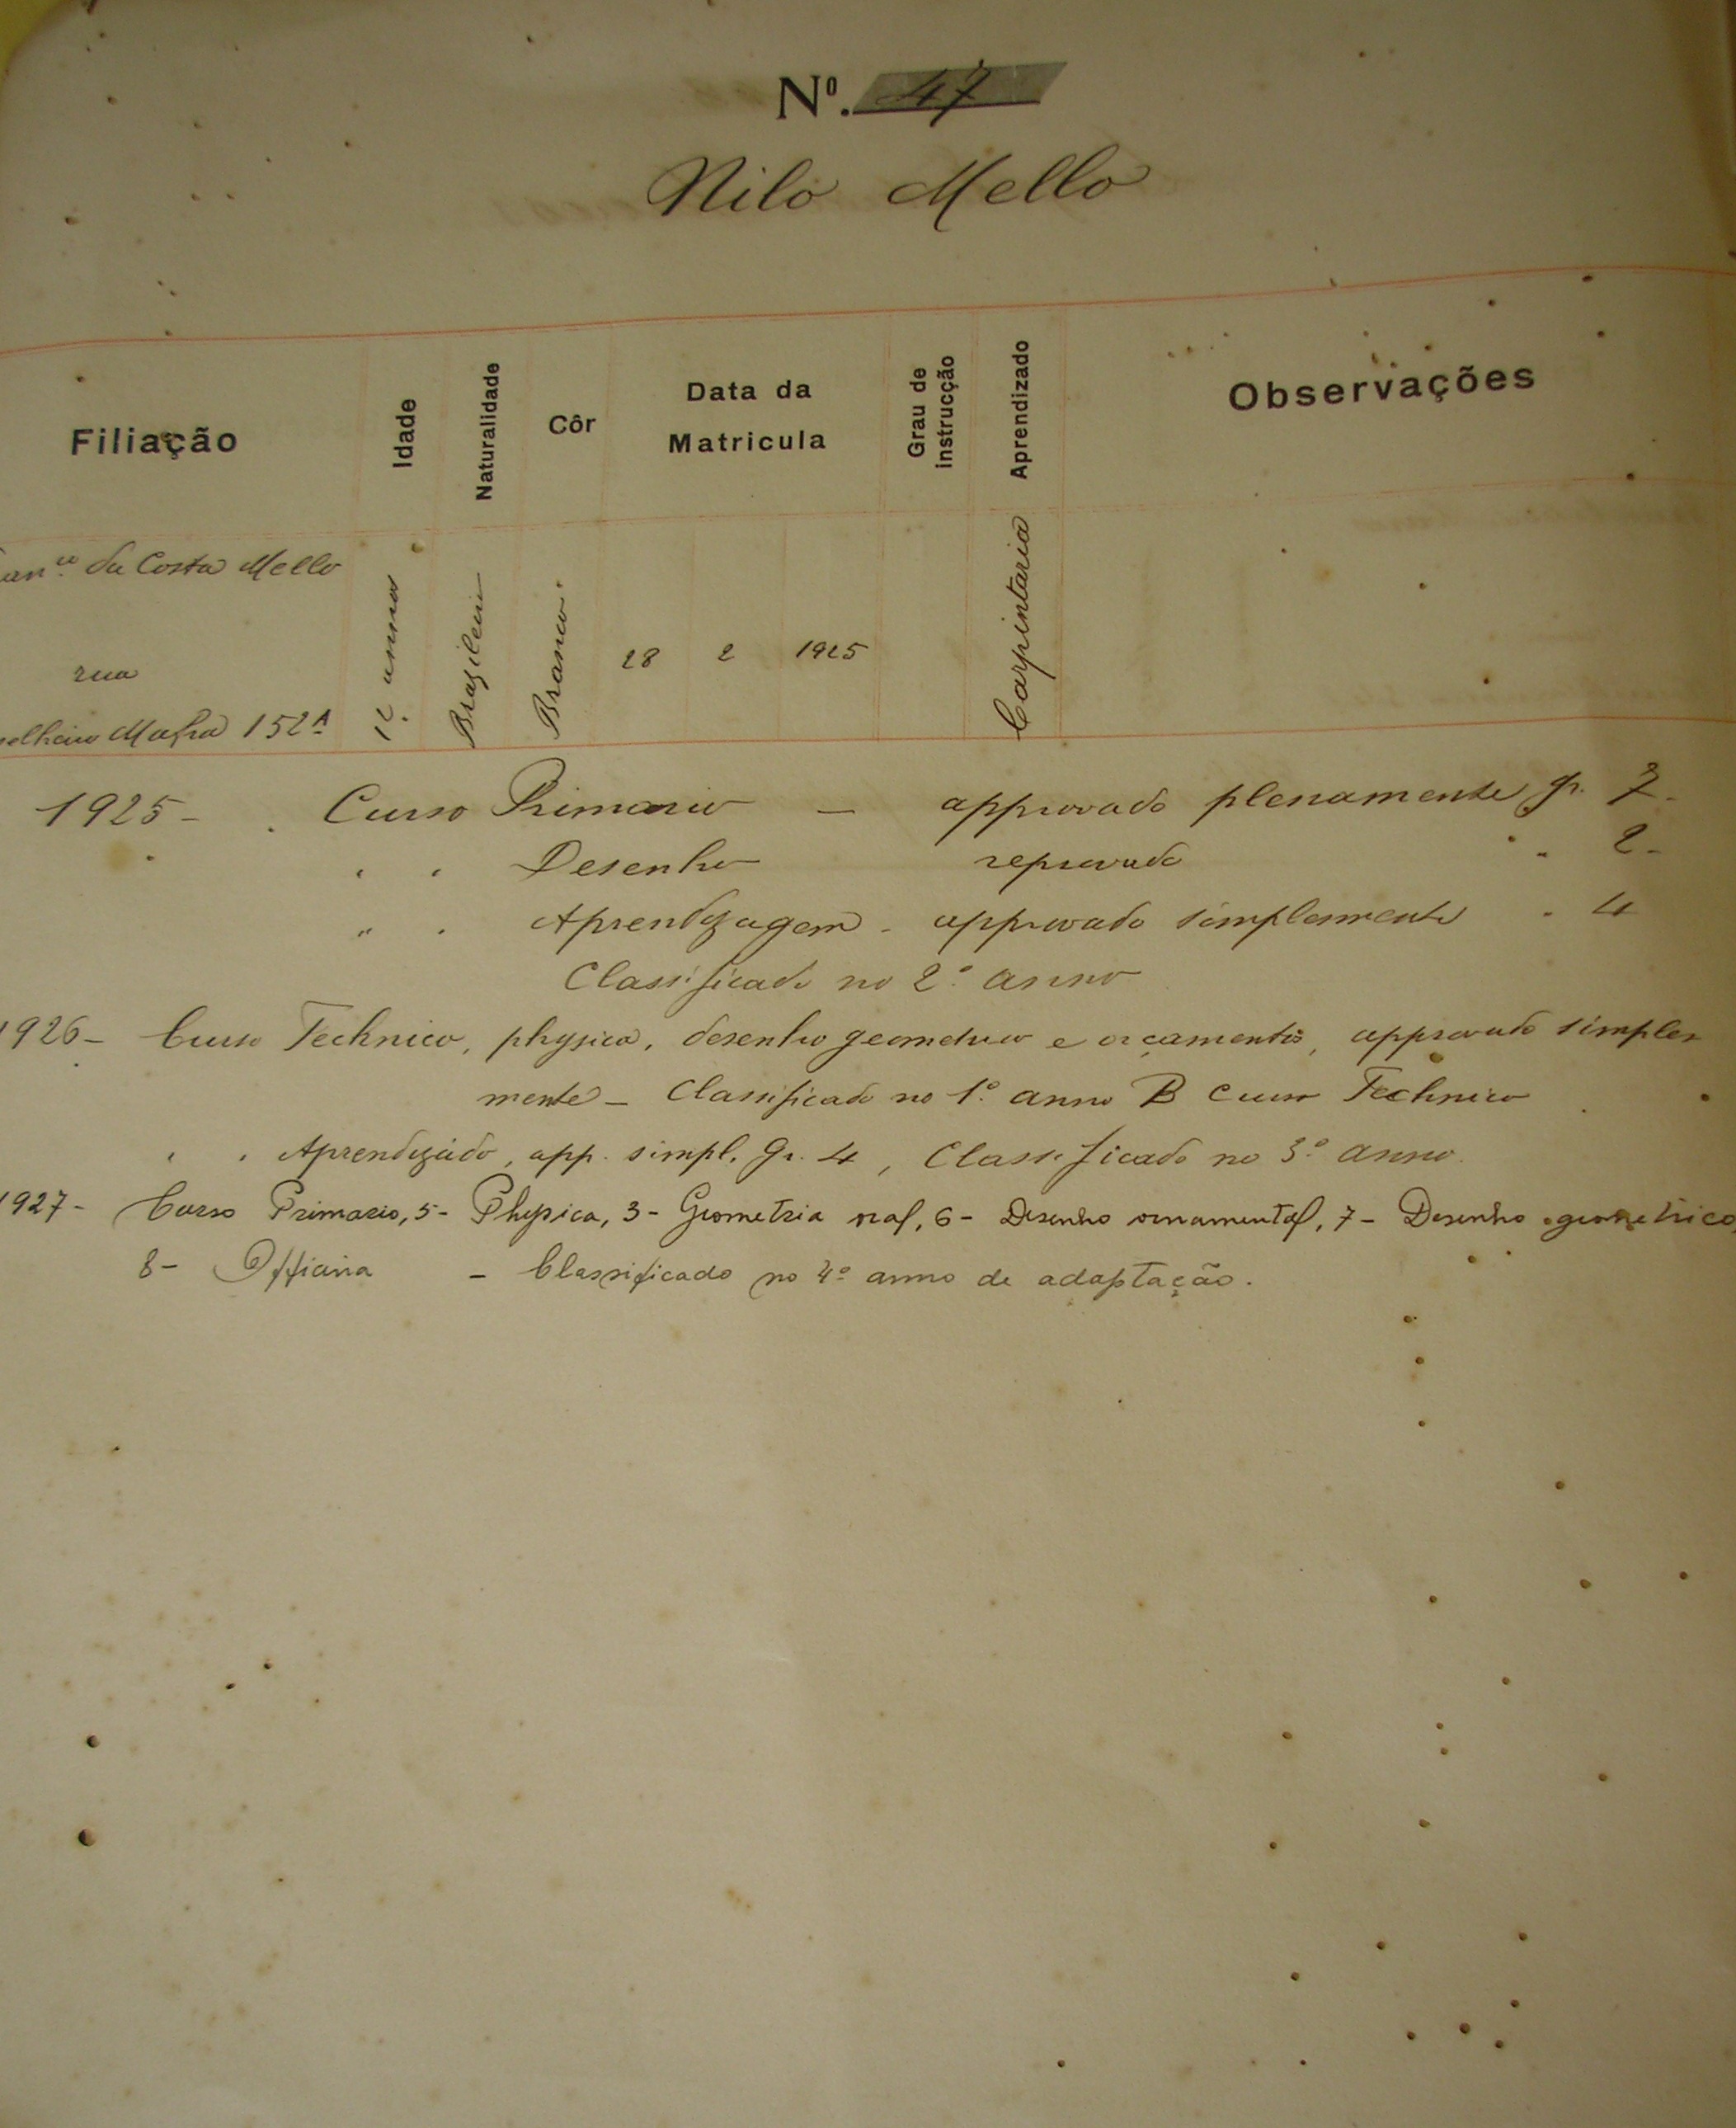 Nº. 47
Nilo Mello
Filiação
Idade
Naturalidade
Côr
Data da
Matricula
Grau de
instrucção
Aprendizado
Observações
da Costa Mello
rua
selheiro Mafra 152A
12 annos
Brazileiro
Branco
28 2 1925
Carpintaria
1925 - Curso Primario — approvado plenamente gr. 7 -
" " Desenho reprovado " " 2 -
" " Aprendizagem - approvado simplesmente " 4
Classificado no 2º anno
1926 - Curso Technico, physica, desenho geometrico e orçamentos, approvado simples
mente - Classificado no 1º anno B Curso Technico
" " Aprendizado, app. simpl. gr. 4, Classificado no 3º anno.
1927 - Curso Primario, 5 - Physica, 3 - Geometria oral, 6 - Desenho ornamental, 7 - Desenho geometrico,
8 - Officina - Classificado no 4º anno de adaptação.